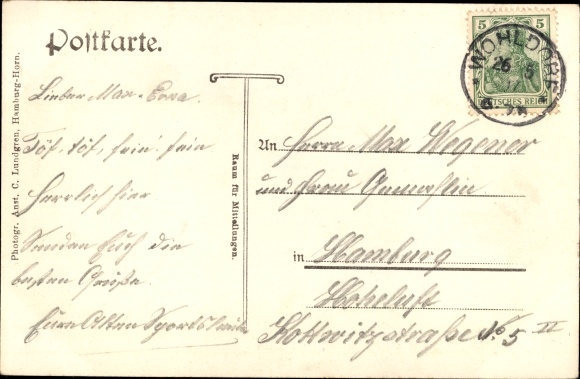 Postkarte.
Lieber Max. Erna
Töf, töf, fein! fein
Herrlich hier
Senden Euch die
besten Grüße.
Eure Alten Sports
Photogr. Anst. C. Lundgren, Hamburg-Horn.
Raum für Mitteilungen.
5 5
DEUTSCHES REICH
WOHLDORF
26 5
An Herrn Max Wegener
und Frau Gemahlin
in Hamburg
Hoheluft
Kottwitzstraße No 5 II